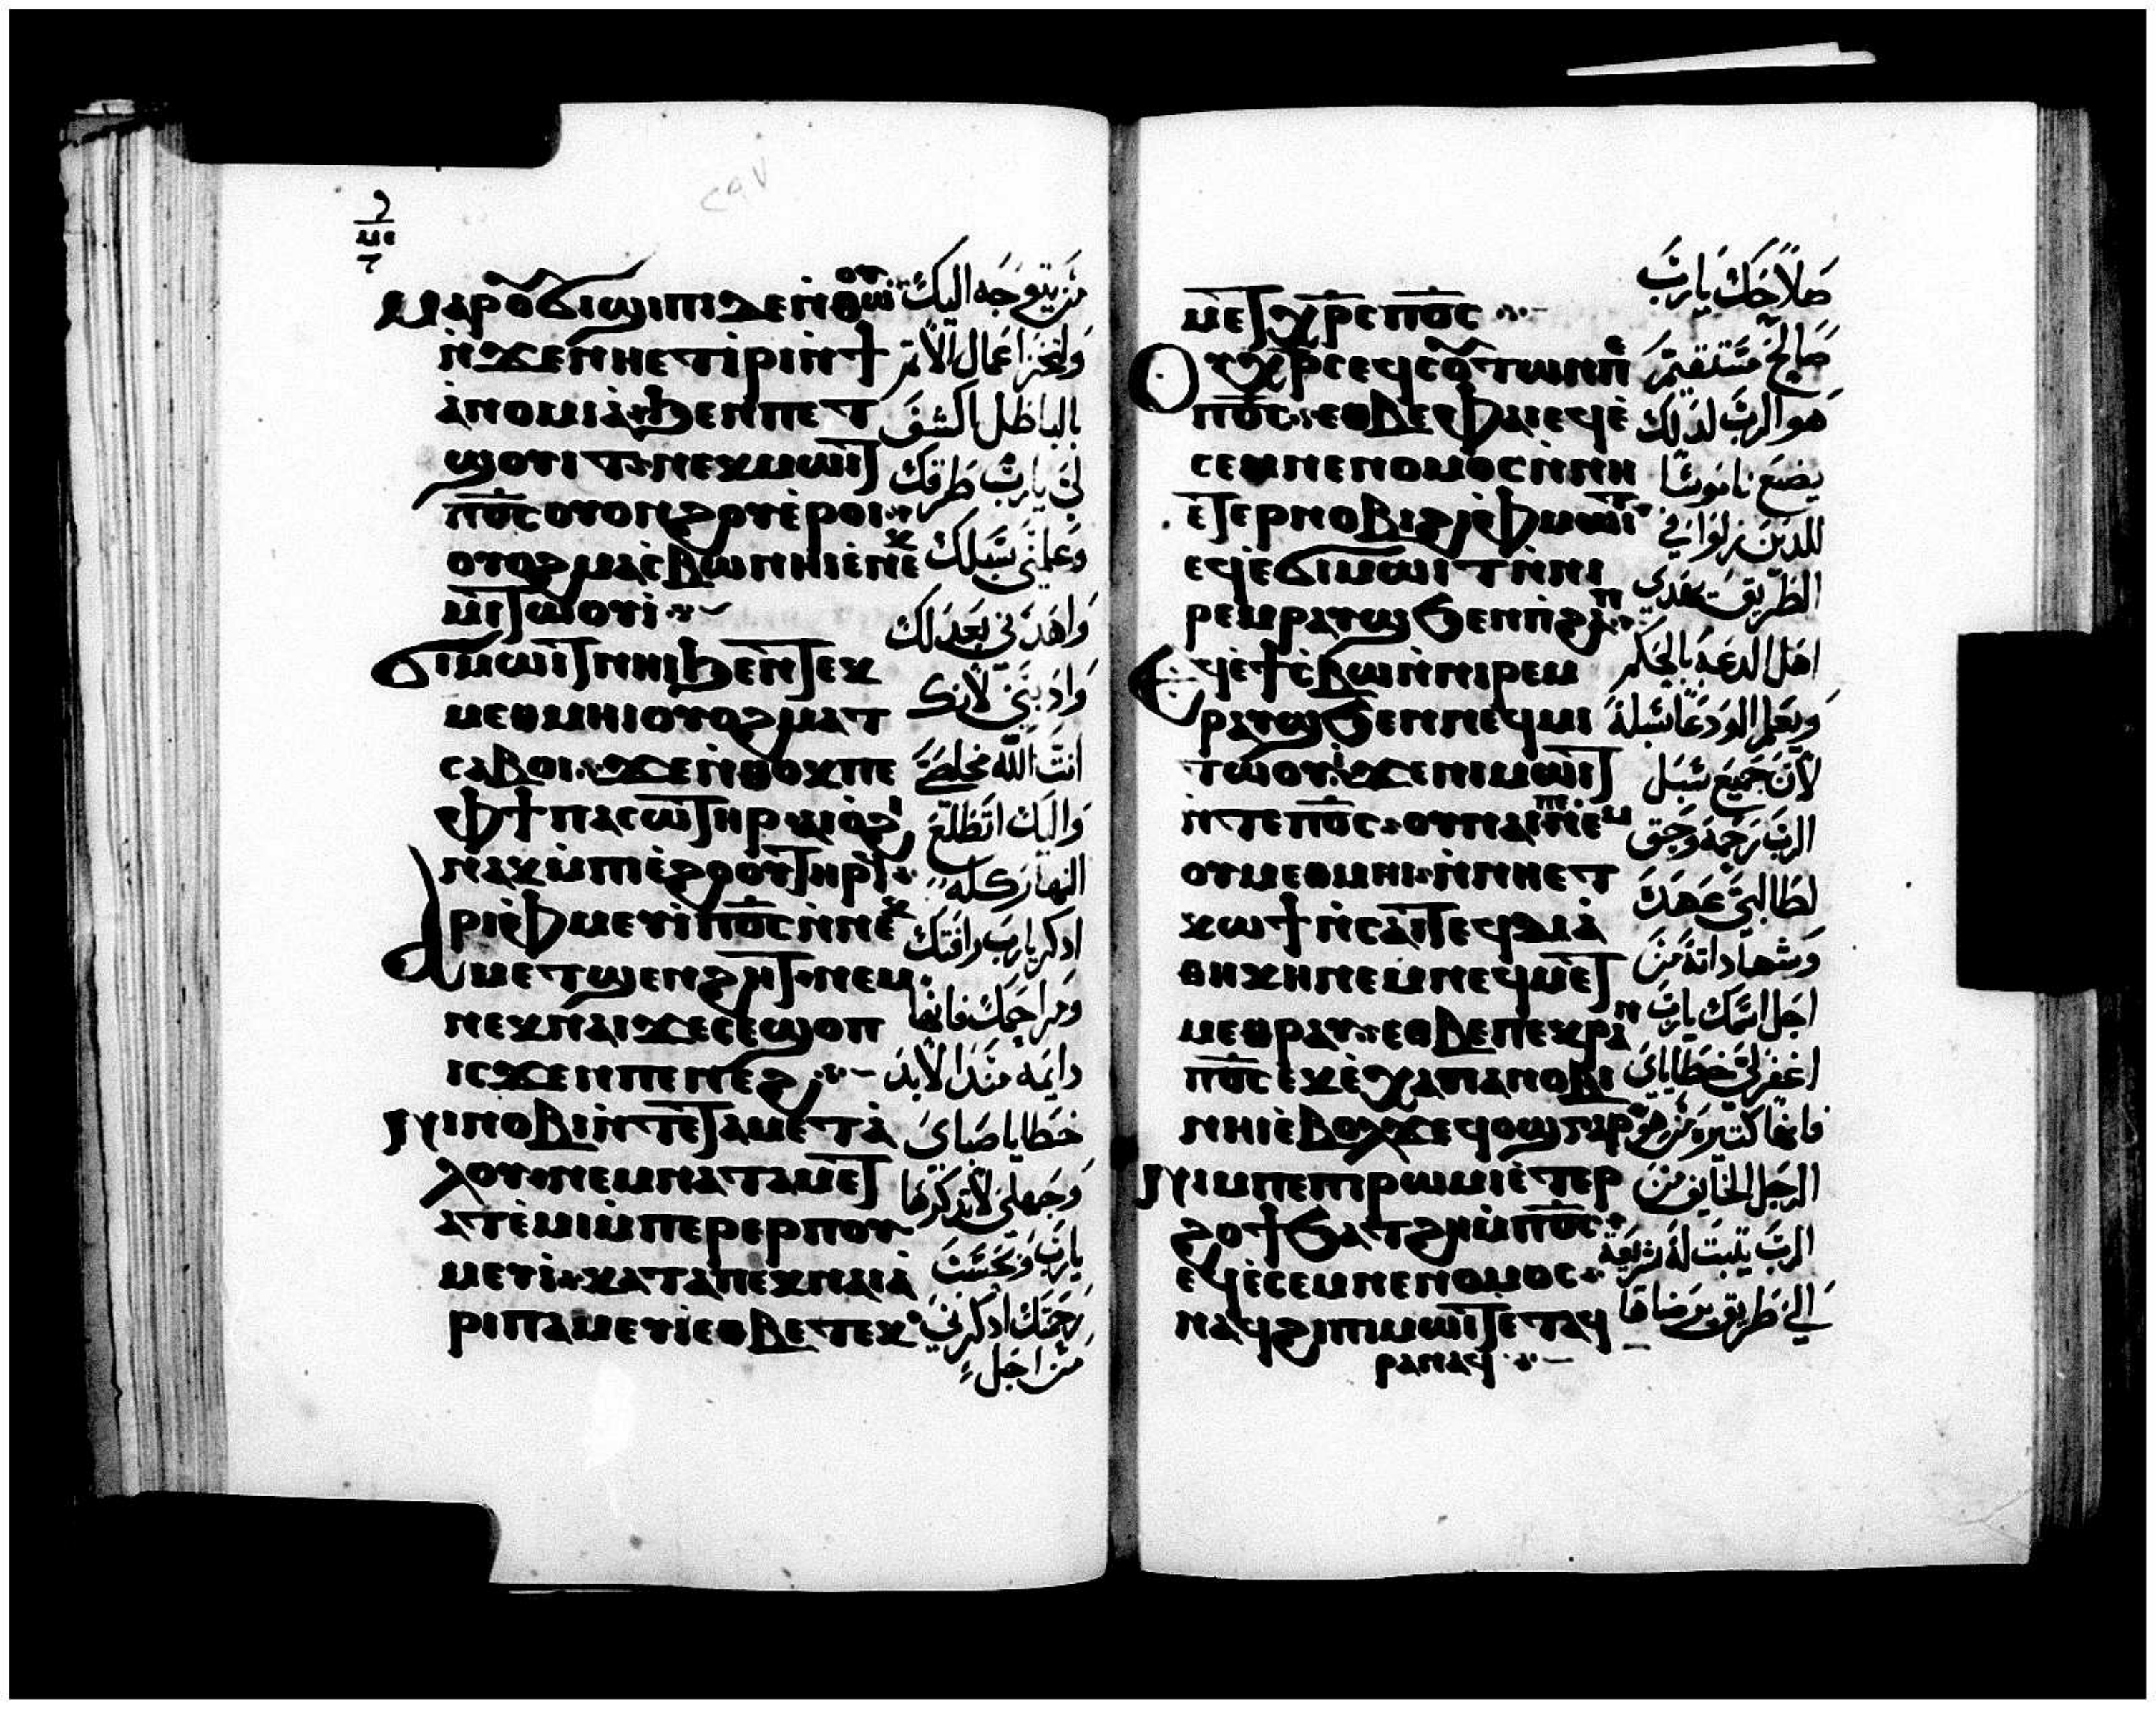 ⲙⲁⲣⲟⲩϭⲓϣⲓⲡⲓⲇⲉⲛ̀ⲑⲱⲟⲩ
ⲛ̀ϫⲉⲛⲏⲉⲧⲓ̀ⲣⲓⲛ̀ϯ
ⲁ̀ⲛⲟⲙⲓⲁ̀ϧⲉⲛⲡⲉⲧ
ϣⲟⲩⲓⲧ ⲛⲉⲕⲙⲱⲓⲧ
ⲡ̅ⲟ̅ⲥ̅ⲟⲩⲟⲛϩⲟⲩⲉ̀ⲣⲟⲓ
ⲟⲩⲟϩⲙⲁⲥ̀ⲃⲱⲛⲏⲓⲉ̀ⲛⲉⲕ
ⲙⲓⲧⲱⲟⲩⲓ̀
ϭⲓⲙⲱⲓⲧⲛⲏⲓϧⲉⲛⲧⲉⲕ
ⲙⲉⲑⲙⲏⲓⲟⲩⲟϩⲙⲁⲧ
ⲥⲁⲃⲟⲓ ϫⲉⲛ̀ⲑⲟⲕⲡⲉ
ⲫϯⲡⲁⲥⲱⲧⲏⲣⲁⲓⲟ̀ϩⲓ
ⲛⲁⲕⲙ̀ⲡⲓⲉ̀ϩⲟⲟⲩⲧⲏⲣϥ
ⲁⲣⲓⲫ̀ⲙⲉⲩⲓ̀ⲡ̅ⲟ̅ⲥ̅ⲛ̀ⲛⲉⲕ
ⲙⲉⲧϣⲉⲛϩⲏⲧ ⲛⲉⲙ
ⲛⲉⲕⲛⲁⲓϫⲉⲥⲉϣⲟⲡ
ⲓⲥϫⲉⲛⲡⲉⲛⲉϩ
ⲛⲓⲛⲟⲃⲓⲛ̀ⲧⲉⲧⲁⲙⲉⲧⲁ̀
ⲗⲟⲩ ⲛⲉⲙⲛⲁⲧⲁⲙⲉⲧ
ⲁⲧⲉ̀ⲙⲓⲙ̀ⲡⲉⲣⲉⲣⲡⲟⲩ
ⲙⲉⲩⲓ̀ ⲕⲁⲧⲁⲡⲉⲕⲛⲁⲓⲁ̀
ⲣⲓⲡⲁⲙⲉⲩⲓ̀ⲉⲑⲃⲉⲧⲉⲕ
من يتوجه اليك
وليخز اعمال الاثم
بالباطل اكشف
لي يارب طرقك
وعلمني سبلك
واهدني بعدلك
وادبني لانك
انت الله مخلصي
واليك اتطلع
النهار كله
ادكر يارب رافتك
ومراحمك فانها
دايمة مند الابد
خطايا صباي
وجهلي لا تدكرها
يارب وبحسب
رحمتك ادكرني
من اجل
ⲙⲉⲧⲭⲣⲥ ⲡ̅ⲟ̅ⲥ̅
ⲟⲩⲭⲣⲥⲉϥⲥⲟⲩⲧⲱⲛⲡⲉ
ⲡ̅ⲟ̅ⲥ̅ ⲉⲑⲃⲉⲫⲁⲓⲉϥⲉ̀
ⲥⲉⲙⲛⲉⲛⲟⲙⲟⲥⲛ̀ⲛⲏ
ⲉⲧⲉⲣⲛⲟⲃⲓϩⲓⲫ̀ⲙⲱⲓⲧ
ⲉϥⲉ̀ϭⲓⲙⲱⲓⲧⲛ̀ⲛⲓ
ⲣⲉⲙⲣⲁⲩϣϧⲉⲛⲡⲓϩⲁⲡ
ⲉϥⲉ̀ϯⲥ̀ⲃⲱⲛ̀ⲛⲓⲣⲉⲙ
ⲣⲁⲩϣϧⲉⲛⲛⲉϥⲙⲓ
ⲧⲱⲟⲩⲓ̀ ϫⲉⲛⲓⲙⲱⲓⲧ
ⲛ̀ⲧⲉⲡ̅ⲟ̅ⲥ̅ ⲟⲩⲛⲁⲓⲛⲉⲙ
ⲟⲩⲙⲉⲑⲙⲏⲓ ⲛ̀ⲛⲏⲉⲧ
ⲕⲱϯⲛ̀ⲥⲁⲧⲉϥⲇⲓⲁ̀
ⲑⲏⲕⲏⲛⲉⲙⲛⲉϥⲙⲉⲧ
ⲙⲉⲑⲣⲁⲩ ⲉⲑⲃⲉⲡⲉⲕⲣⲁⲛ
ⲡ̅ⲟ̅ⲥ̅ⲉⲕⲉ̀ⲭⲁⲡⲁⲛⲟⲃⲓ
ⲛⲏⲓⲉ̀ⲃⲟⲗϫⲉϥⲟϣⲅⲁⲣ
ⲛⲓⲙⲡⲉⲡⲓⲣⲱⲙⲓⲉ̀ⲧⲉⲣ
ϩⲟϯϧⲁⲧϩⲏⲙ̀ⲡ̅ⲟ̅ⲥ̅
ⲉϥⲉ̀ⲥⲉⲙⲛⲉⲛⲟⲙⲟⲥ
ⲛⲁϥϩⲓⲡⲓⲙⲱⲓⲧⲉ̀ⲧⲁϥ
ⲣⲁⲛⲁϥ
صلاحك يارب
صالح مستقيم
هو الرب لدلك
يضع ناموسا
للدين زلوا في
الطريق يهدي
اهل الدعة بالحكم
ويعلم الودعا سبله
لان جميع سبل
الرب رحمة وحق
لطالبي عهده
وشهاداته من
اجل اسمك يارب
اغفر لي خطاياي
فانها كتيرة من هو
الرجل الخايف من
الرب يتبت له شريعة
في طريق يرضاها